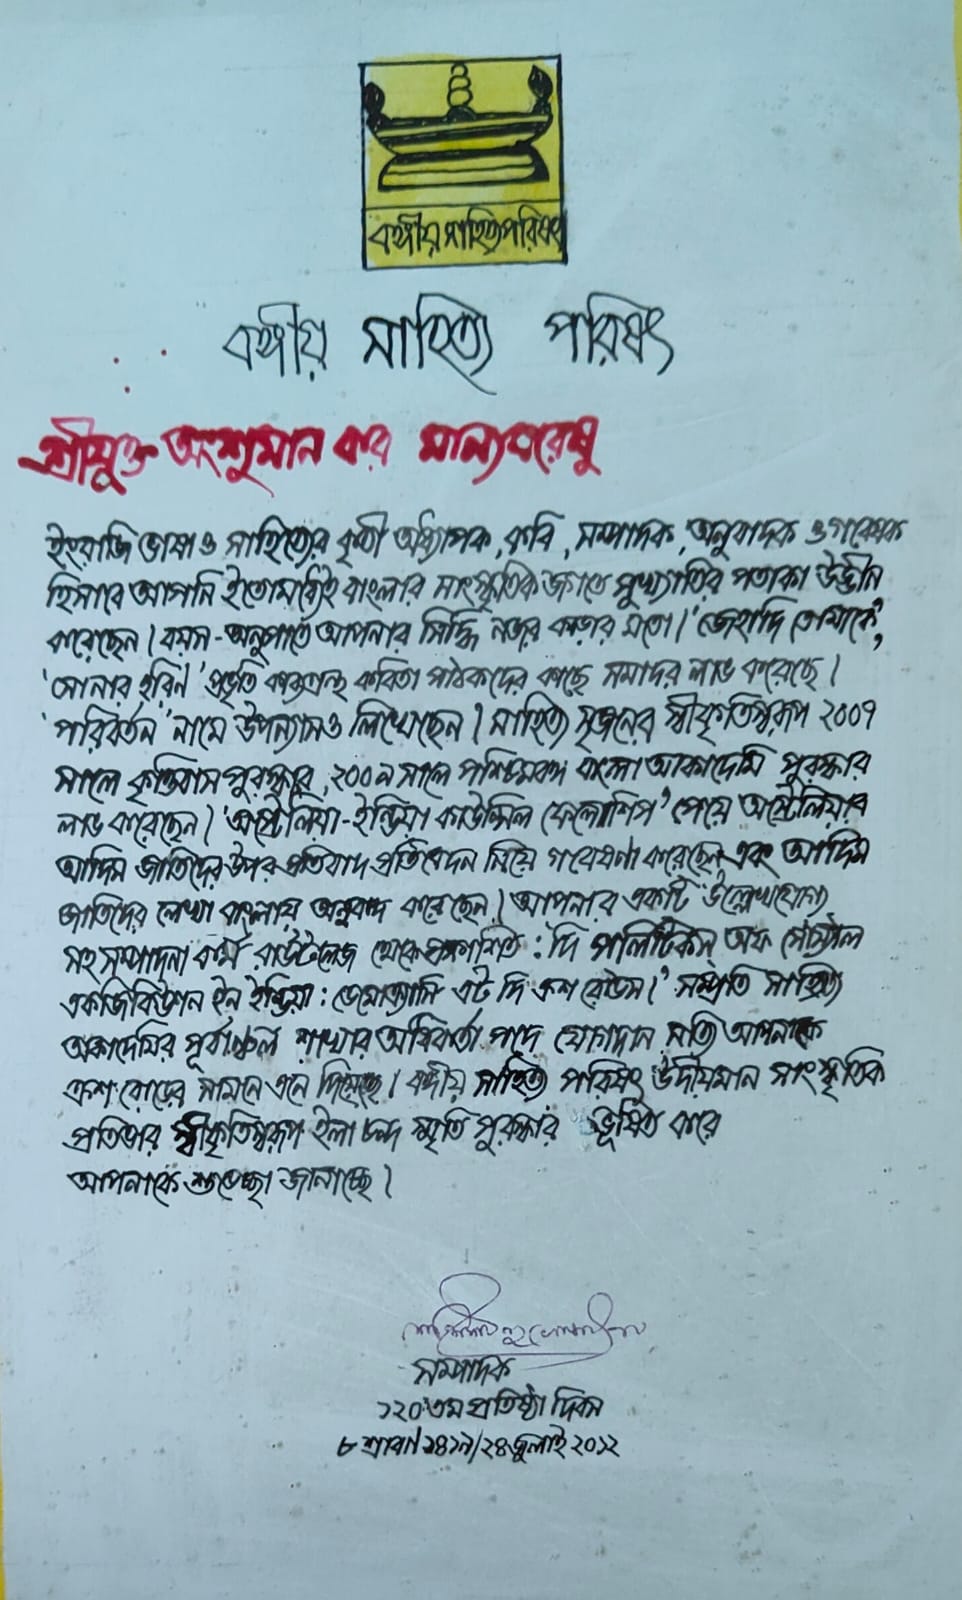 বঙ্গীয় সাহিত্য পরিষৎ
বঙ্গীয় সাহিত্য পরিষৎ
শ্রীযুক্ত অংশুমান কর মান্যবরেষু
ইংরাজি ভাষা ও সাহিত্যের কৃতী অধ্যাপক, কবি, সম্পাদক, অনুবাদক ও গবেষক
হিসাবে আপনি ইতোমধ্যেই বাংলার সাংস্কৃতিক জগতে সুখ্যাতির পতাকা উড্ডীন
করেছেন। বয়স-অনুপাতে আপনার সিদ্ধি নজর কাড়ার মতো। 'জেহাদি তোমাকে',
'সোনার হরিণ' প্রভৃতি কাব্যগ্রন্থ কবিতা পাঠকদের কাছে সমাদর লাভ করেছে।
'পরিবর্তন' নামে উপন্যাসও লিখেছেন। সাহিত্য সৃজনের স্বীকৃতিস্বরূপ ২০০৭
সালে কৃত্তিবাস পুরস্কার, ২০০৯ সালে পশ্চিমবঙ্গ বাংলা আকাদেমি পুরস্কার
লাভ করেছেন। 'অস্ট্রেলিয়া-ইন্ডিয়া কাউন্সিল ফেলোশিপ' পেয়ে অস্ট্রেলিয়ার
আদিম জাতিদের উপর প্রতিবাদ প্রতিবেদন নিয়ে গবেষণা করেছেন এবং আদিম
জাতিদের লেখা বাংলায় অনুবাদ করেছেন। আপনার একটি উল্লেখযোগ্য
সহ সম্পাদনা কর্ম রাউটলেজ থেকে প্রকাশিত : 'দি পলিটিকস্ অফ সোস্যাল
একজিবিউশন ইন ইন্ডিয়া : ডেমোক্র্যাসি এট দি ক্রশ রোডস।' সম্প্রতি সাহিত্য
অকাদেমির পূর্বাঞ্চল শাখার অধিকর্তা পদে যোগদান সত্যি আপনাকে
ক্রশ রোডের সামনে এনে দিয়েছে। বঙ্গীয় সাহিত্য পরিষৎ উদীয়মান সাংস্কৃতিক
প্রতিভার স্বীকৃতিস্বরূপ ইলা চন্দ স্মৃতি পুরস্কার ভূষিত করে
আপনাকে শুভেচ্ছা জানাচ্ছে।
সম্পাদক
১২০তম প্রতিষ্ঠা দিবস
৮ শ্রাবণ ১৪১৯/২৪ জুলাই ২০১২